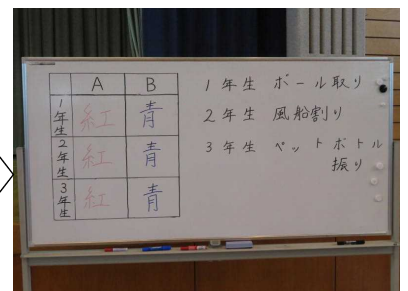 A B
1年生 紅 青
2年生 紅 青
3年生 紅 青
1年生 ボール取り
2年生 風船割り
3年生 ペットボトル
振り